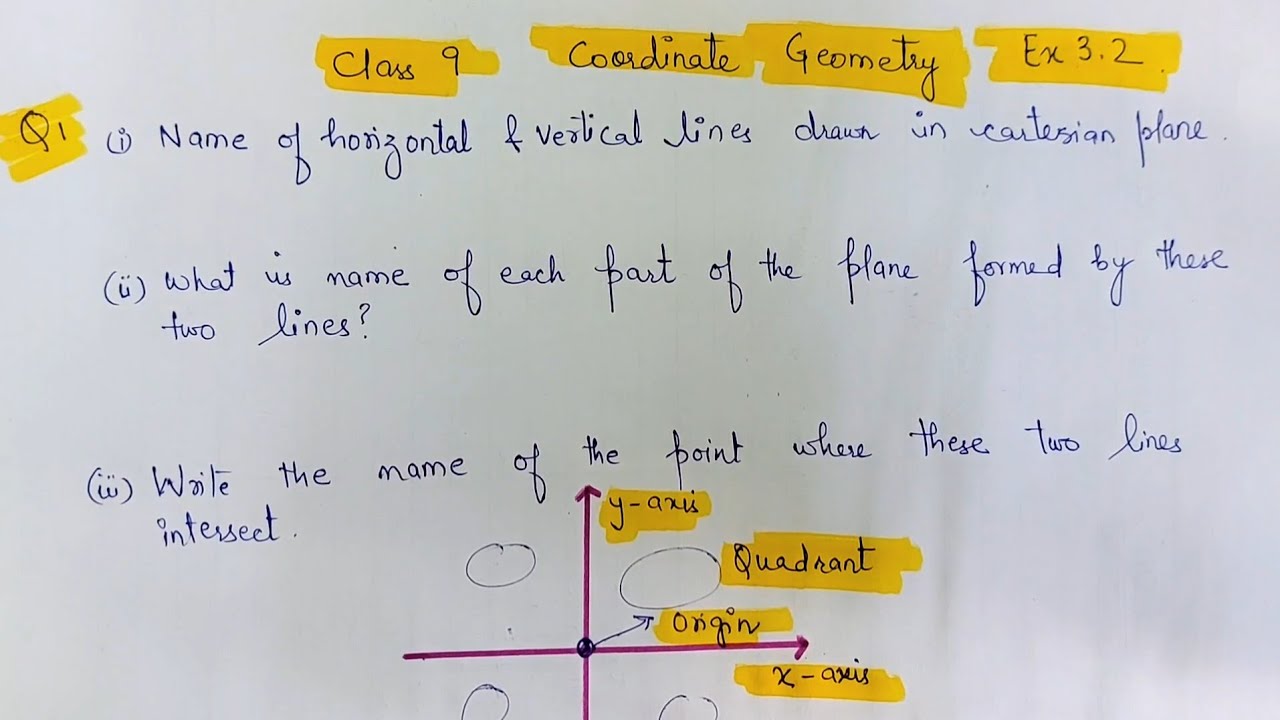 Class 9 Coordinate Geometry Ex 3.2.
Q1 (i) Name of horizontal & vertical lines drawn in cartesian plane.
(ii) What is name of each part of the plane formed by these
two lines?
(iii) Write the name of the point where these two lines
intersect.
y-axis
Quadrant
Origin
x-axis